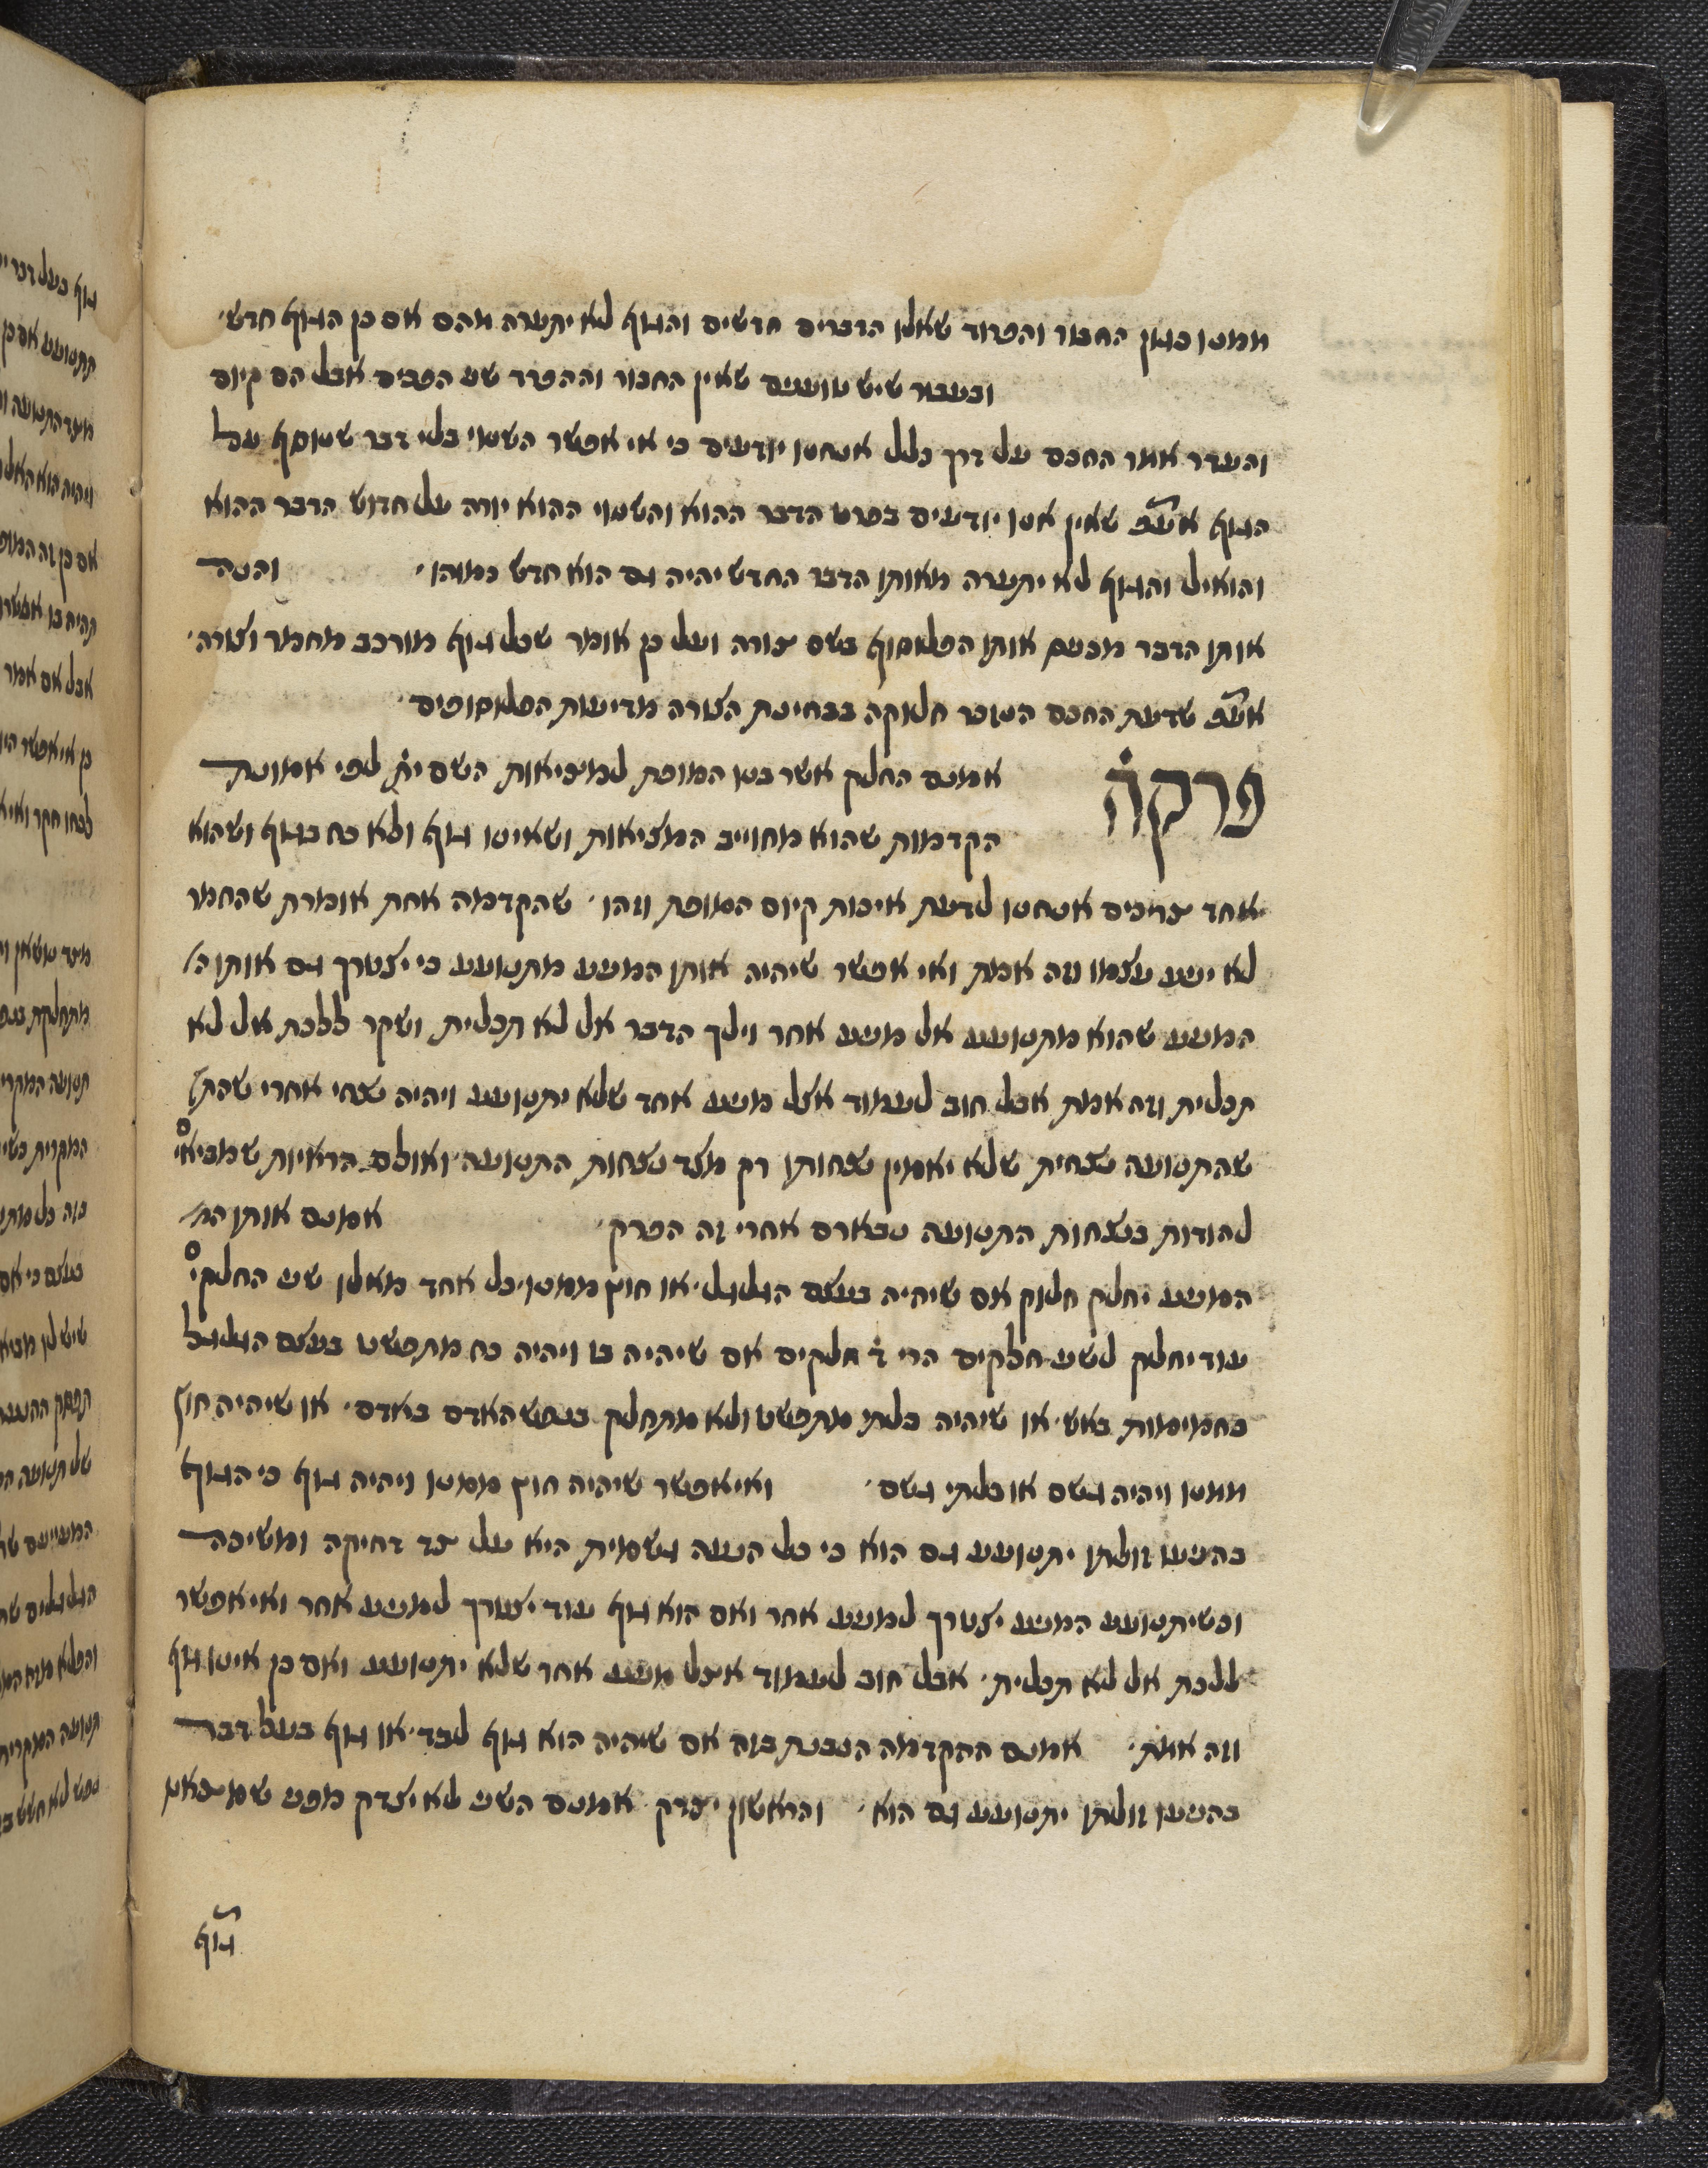 ממנו כגון החבור והפרוד שאלו הדברים חדשים והגוף לא יתערה מהם אם כן הגוף חדש׳
ובעבור שיש טוענים שאין החבור וההפרד שני הפכים אבל הם קיום
והעדר אמר החכם על דרך כלל אנחנו יודעים כי אי אפשר השנוי בלי דבר שנוסף על
הגוף אע״פ שאין אנו יודעים בפרט הדבר ההוא והשנוי ההוא יורה על חדוש הדבר ההוא
והואיל והגוף לא יתערה מאותו הדבר החדש יהיה גם הוא חדש כמוהו׳ והנה
אותו הדבר מכנים אותו הפלוסוף בשם צורה ועל כן אומר שכל גוף מורכב מחמר וצורה׳
אע״פ שדעת החכם הנזכר חלוקה בבחינת הצורה מדיעות הפלוסופים׳
פרק ה
אמנם החלק אשר בנו המופת למציאות השם ית׳ לפי אמונת
הקדמות שהוא מחוייב המציאות ושאינו גוף ולא כח בגוף ושהוא
אחד צריכים אנחנו לדעת איכות קיום המופת וזהו׳ שהקדמה אחת אומרת שהחמר
לא יניע עצמו וזה אמת ואי אפשר שיהיה אותו המניע מתנועע כי יצטרך גם אותו ה׳
המניע שהוא מתנועע אל מניע אחר וילך הדבר אל לא תכלית ושקר ללכת אל לא
תכלית וזה אמת אבל חוב לעמוד אצל מניע אחד שלא יתנועע ויהיה נצחי אחרי שהת׳
שהתנועה נצחית שלא יאמין נצחותו רק מצד נצחות התנועה׳ ואולם הראיות שמביאי׳
להודות בנצחות התנועה נבארם אחרי זה הפרק׳ אמנם אותו המ׳
המניע יחלק חלוק אם שיהיה בעצם הגלגל׳ או חוץ ממנו׳ כל אחד מאלו שני החלקי׳
עוד יחלק לשני חלקים הרי ד׳ חלקים אם שיהיה בו ויהיה כח מתפשט בעצם הגלגל
כחמימות באש׳ או שיהיה בלתי מתפשט ולא מתחלק כנפש האדם באדם׳ או שיהיה חוץ
ממנו ויהיה גשם או בלתי גשם׳ ואי אפשר שיהיה חוץ ממנו ויהיה גוף כי הגוף
בהניעו זולתו יתנועע גם הוא כי כל הנעה גשמית היא על צד דחיקה ומשיכה
וכשיתנועע המניע יצטרך למניע אחר ואם הוא גוף עוד יצטרך למניע אחר ואי אפשר
ללכת אל לא תכלית׳ אבל חוב לעמוד אצל מניע אחד שלא יתנועע ואם כן אינו גוף
וזה אמת׳ אמנם ההקדמה הנבנת בזה אם שיהיה הוא גוף לבד׳ או גוף בעל דבר
בהניעו זולתו יתנועע גם הוא׳ והראשון יצדק אמנם השני לא יצדק מפני שמצאנו
גוף